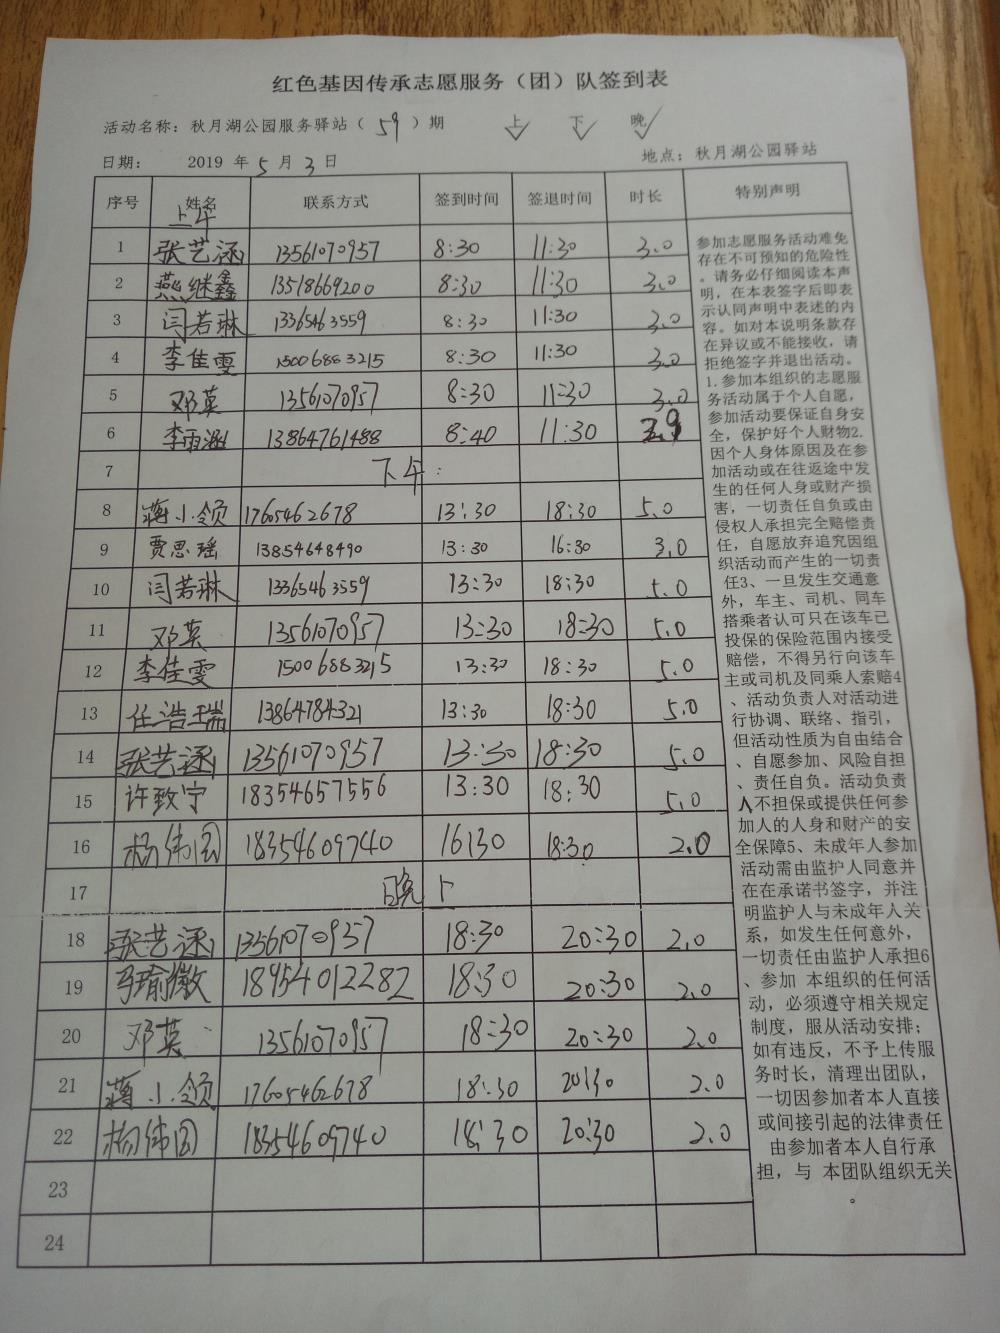 红色基因传承志愿服务（团）队签到表
活动名称：秋月湖公园服务驿站（59）期 上√ 下√ 晚√
日期： 2019 年 5 月 3 日 地点：秋月湖公园驿站
序号 姓名 联系方式 签到时间 签退时间 时长 特别声明
上午
1 张艺涵 13561070957 8:30 11:30 3.0
2 燕继鑫 13518669200 8:30 11:30 3.0
3 闫若琳 1336546 3559 8:30 11:30 3.0
4 李佳雯 15006883215 8:30 11:30 3.0
5 邓英 13561070957 8:30 11:30 3.0
6 李雨涵 13864761488 8:40 11:30
7 下午：
8 蒋小领 17605462678 13:30 18:30 5.0
9 贾思瑶 13854648490 13:30 16:30 3.0
10 闫若琳 1336546 3559 13:30 18:30 5.0
11 邓英 13561070957 13:30 18:30 5.0
12 李佳雯 15006883215 13:30 18:30 5.0
13 任浩瑞 13864784321 13:30 18:30 5.0
14 张艺涵 13561070957 13:30 18:30 5.0
15 许致宁 18354657556 13:30 18:30 5.0
16 杨伟国 18354609740 16:30 18:30 2.0
17 晚上
18 张艺涵 13561070957 18:30 20:30 2.0
19 马瑜徽 18954012282 18:30 20:30 2.0
20 邓英 13561070957 18:30 20:30 2.0
21 蒋小领 17605462678 18:30 20:30 2.0
22 杨伟国 18354609740 18:30 20:30 2.0
23
24
参加志愿服务活动难免
存在不可预知的危险性
。请务必仔细阅读本声
明，在本表签字后即表
示认同声明中表述的内
容。如对本说明条款存
在异议或不能接收，请
拒绝签字并退出活动。
1.参加本组织的志愿服
务活动属于个人自愿，
参加活动要保证自身安
全，保护好个人财物2.
因个人身体原因及在参
加活动或在往返途中发
生的任何人身或财产损
害，一切责任自负或由
侵权人承担完全赔偿责
任，自愿放弃追究因组
织活动而产生的一切责
任3、一旦发生交通意
外，车主、司机、同车
搭乘者认可只在该车已
投保的保险范围内接受
赔偿，不得另行向该车
主或司机及同乘人索赔4
、活动负责人对活动进
行协调、联络、指引，
但活动性质为自由结合
、自愿参加、风险自担
、责任自负。活动负责
人不担保或提供任何参
加人的人身和财产的安
全保障5、未成年人参加
活动需由监护人同意并
在在承诺书签字，并注
明监护人与未成年人关
系，如发生任何意外，
一切责任由监护人承担6
、参加 本组织的任何活
动，必须遵守相关规定
制度，服从活动安排；
如有违反，不予上传服
务时长，清理出团队，
一切因参加者本人直接
或间接引起的法律责任
由参加者本人自行承
担，与 本团队组织无关
。